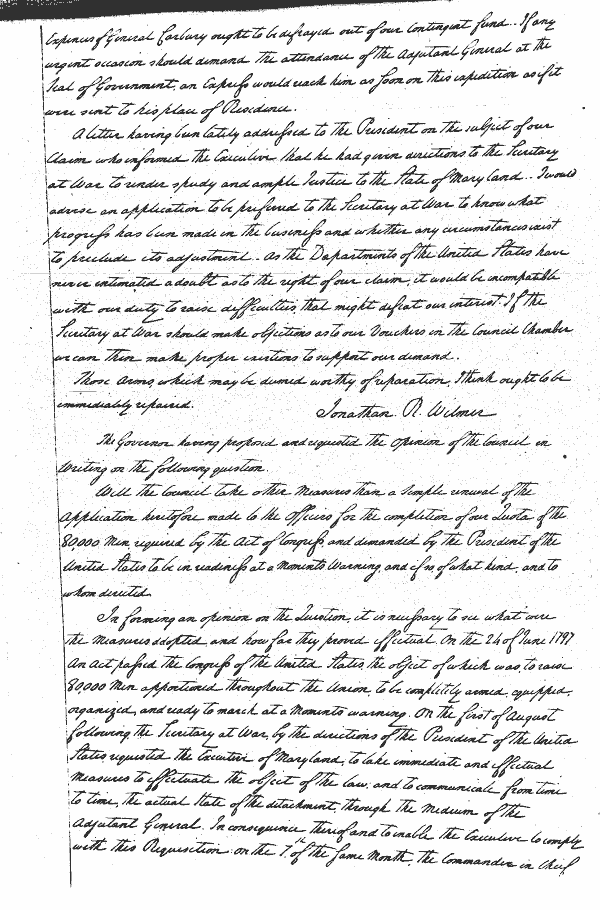 Expences of General Carbury ought to be defrayed out of our Contingent fund.. If any
urgent occasion should demand the attendance of the Adjutant General at the
Seat of Government, an Express would reach him as soon on this expedition as if it
were sent to his place of Residence.
A letter having been lately addressed to the President on the subject of our
Claim who informed the Executive that he had given directions to the Secretary
at War to render speedy and ample Justice to the State of Maryland.. I would
advise an application to be preferred to the Secretary at War to know what
progress has been made in the business and whether any circumstances exist
to preclude its adjustment.. As the Departments of the United States have
never intimated a doubt as to the right of our claim, it would be incompatible
with our duty to raise difficulties, that might defeat our interest. If the
Secretary at War should make objections as to our Vouchers in the Council Chamber
we can then make proper exertions to support our demand..
Those Arms, which may be deemed worthy of reparation, I think ought to be
immediately repaired.
Jonathan R. Wilmer
The Governor having proposed and requested the opinion of the Council in
Writing on the following question.
Will the Council take other Measures than a simple renewal of the
Application heretofore made to the Officers for the completion of our Quota of the
80,000 Men required by the Act of Congress, and demanded by the President of the
United States to be in readiness at a Moments Warning, and if so of what kind, and to
whom directed.
In forming an opinion on the Question, it is necessary to see what were
the Measures adopted and how far they proved effectual. On the 24 of June 1797
An Act passed the Congress of the United States, the object of which was, to raise
80,000 Men apportioned throughout the Union, to be completely armed, equipped,
organized, and ready to march at a Moments warning. On the first of August
following the Secretary at War, by the directions of the President of the United
States requested the Executive of Maryland, to take immediate and effectual
Measures to effectuate the object of the law, and to communicate from time
to time, the actual State of the detachment, through the Medium of the
Adjutant General. In consequence thereof and to enable the Executive to comply
with this Requisition on the 7.th of the same Month, the Commander in Chief